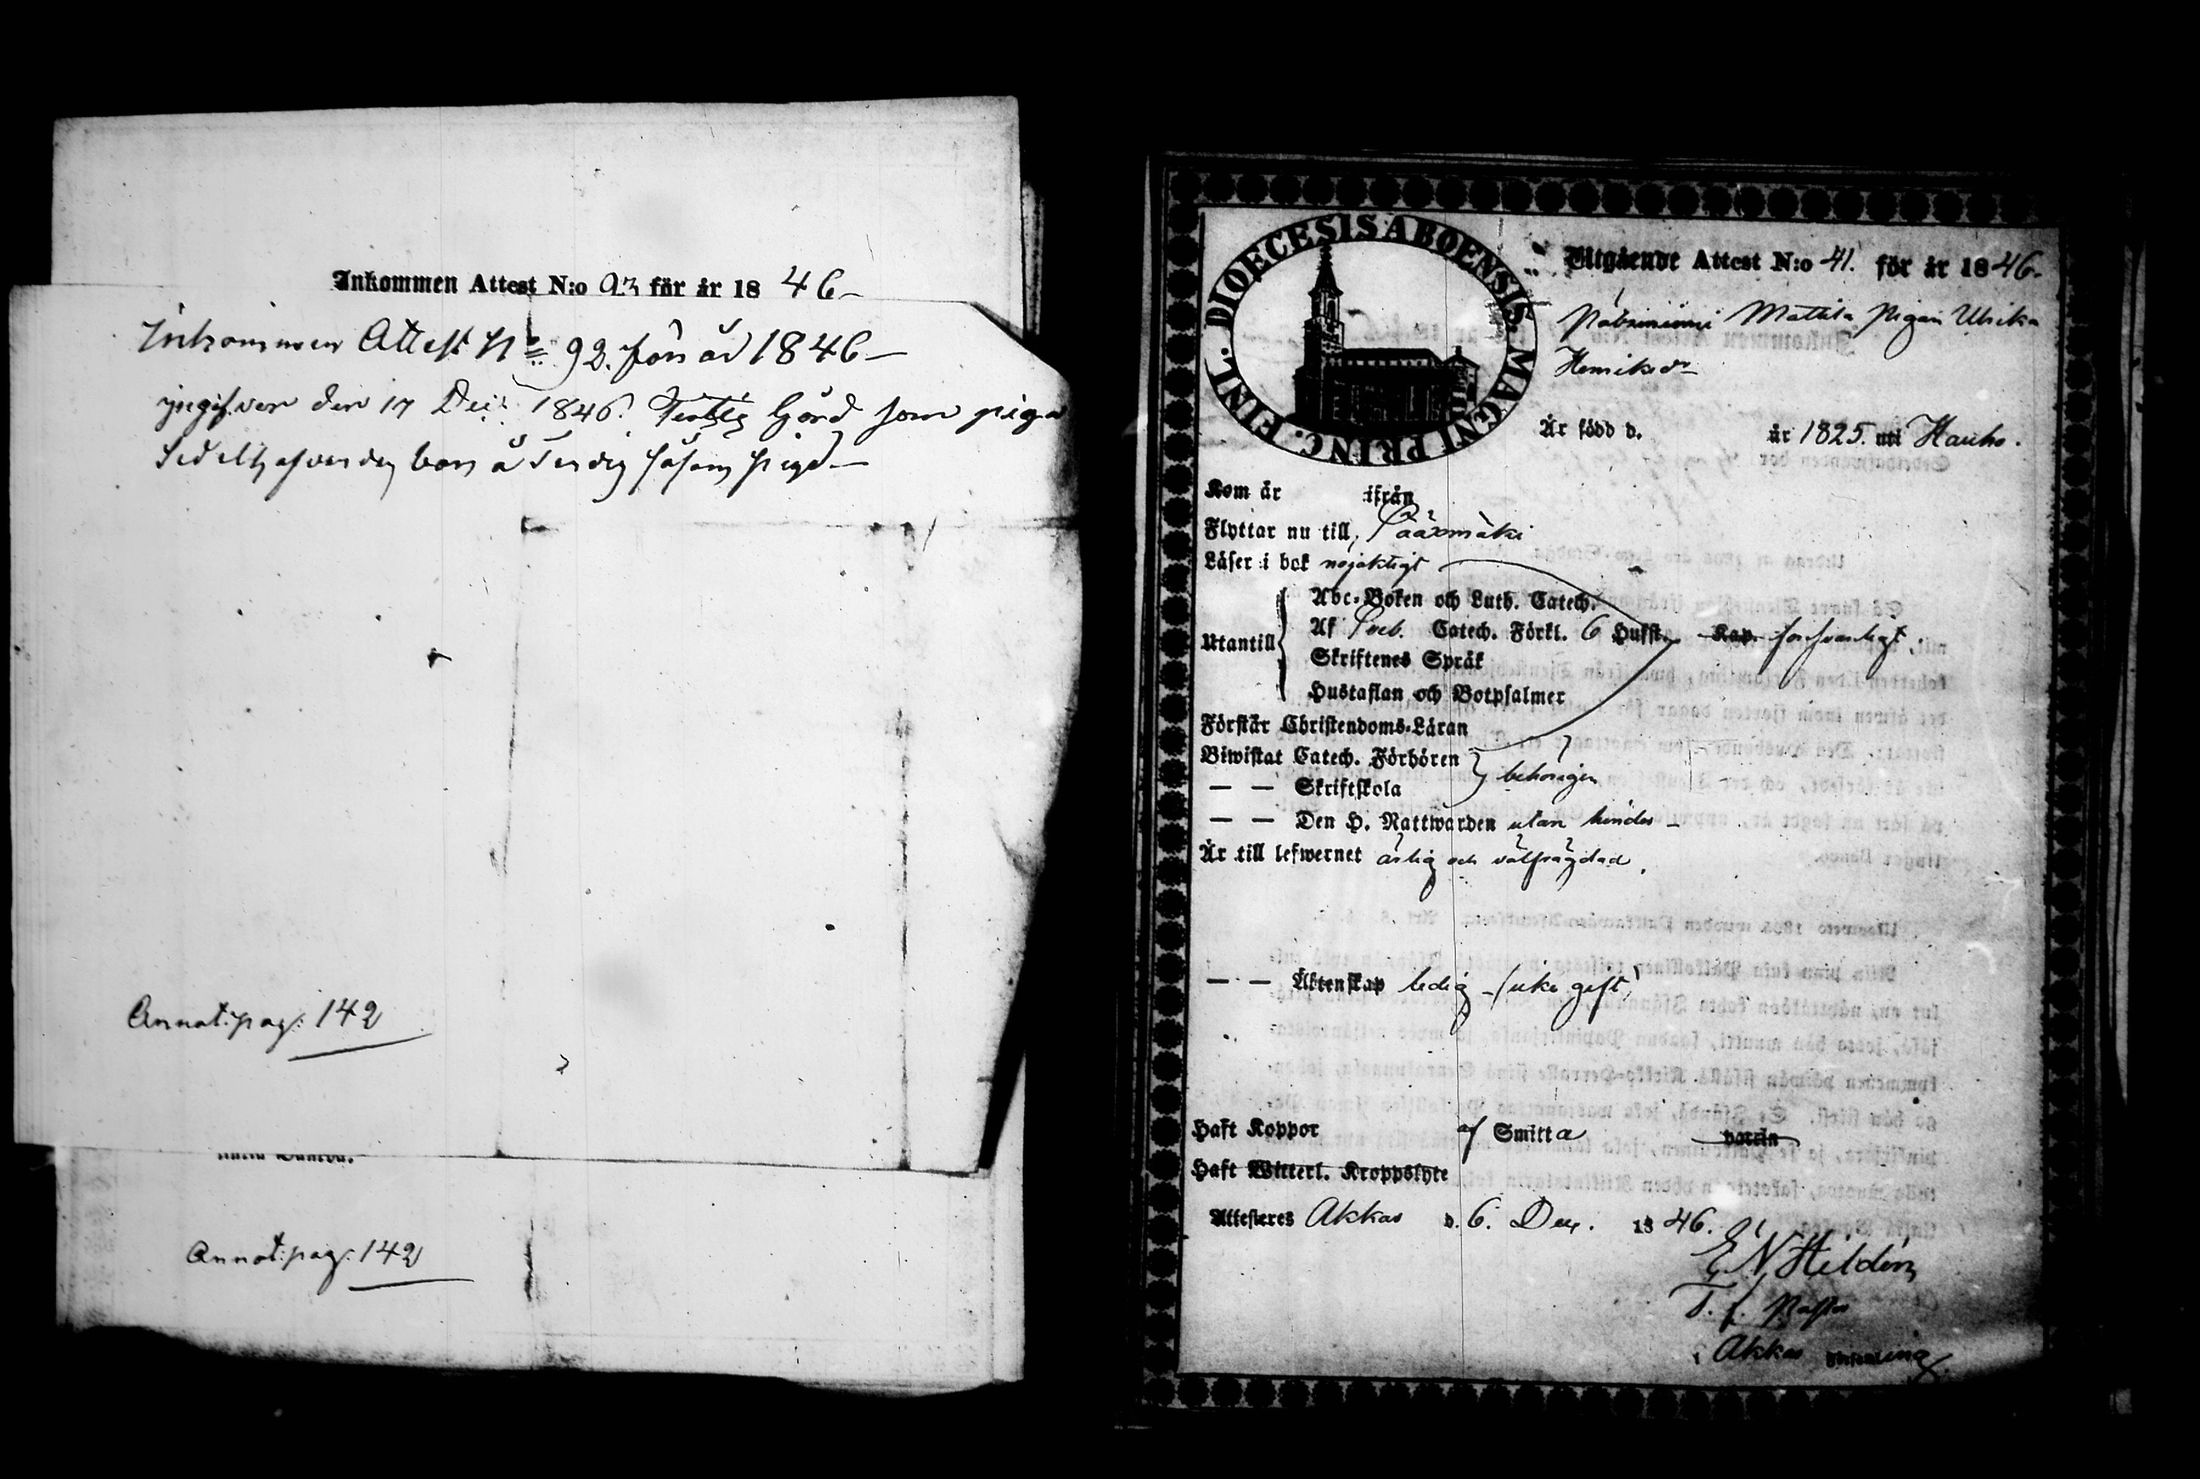 Inkommen Attest N:o 93 för år 1846
Inkommen Attest No 92. för år 1846
ingifven den 17 Dec: 1846. Gård som piga
Sedelhafvanden bor å såsom piga
Annot: pag: 142
Annot: pag: 142
DIOECESIS ABOENSIS. MAGNI PRINC. FINL.
Utgående Attest N:o 41. för år 1846.
Mattila Pigan Ulrika
Henriksdr
Är född d. år 1825. uti Hauho.
Kom år ifrån
Flyttar nu till, Pääxmäki
Läser i bok nöjaktigt
Utantill
Abc-Boken och Luth. Catech.
Af Sveb. Catech. Förkl. 6 Hufst. Kap. försvarligt.
Skriftenes Språk
Hustaflan och Botpsalmer
Förstår Christendoms-Läran
Biwistat Catech. Förhören
— — Skriftskola behörigen
— — Den H. Nattwarden utan hinder
Är till lefwernet ärlig och välfrägdad.
— — Äktenskap ledig (icke gift)
Haft Koppor af Smitta vaccin
Haft Witterl. Kroppslyte
Attesteras Akkas d. 6. Dec. 1846.
E N Heldén
T. f. Pastor
i Akkas Församling